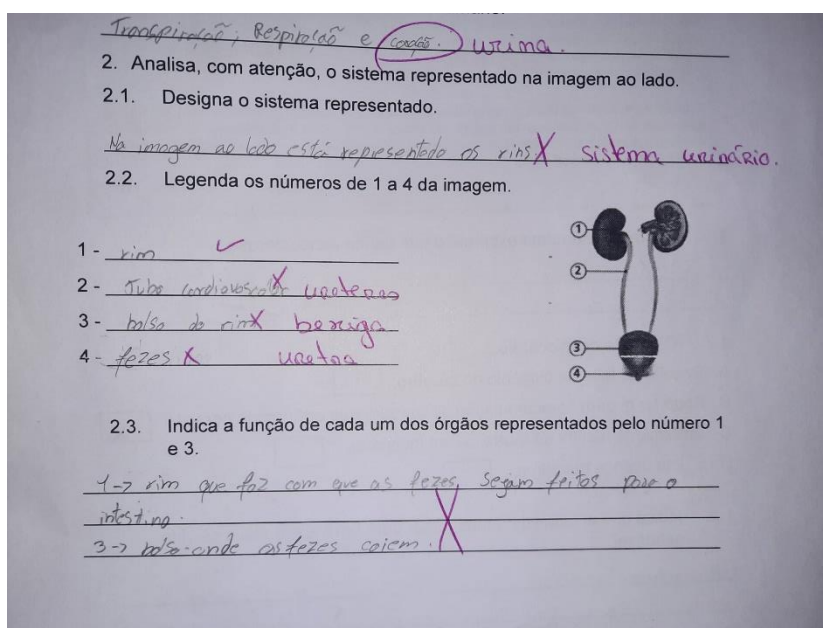 Transpiração, Respiração e coração. urina.
2. Analisa, com atenção, o sistema representado na imagem ao lado.
2.1. Designa o sistema representado.
Na imagem ao lado está representado os rins X sistema urinário.
2.2. Legenda os números de 1 a 4 da imagem.
1 - rim
2 - Tubo cardiovascular X ureteres
3 - bolso do rim X bexiga
4 - fezes X uretra
1
2
3
4
2.3. Indica a função de cada um dos órgãos representados pelo número 1
e 3.
1-> rim que faz com que as fezes, segam feitos para o
intestino.
3-> bolso onde as fezes caiem.